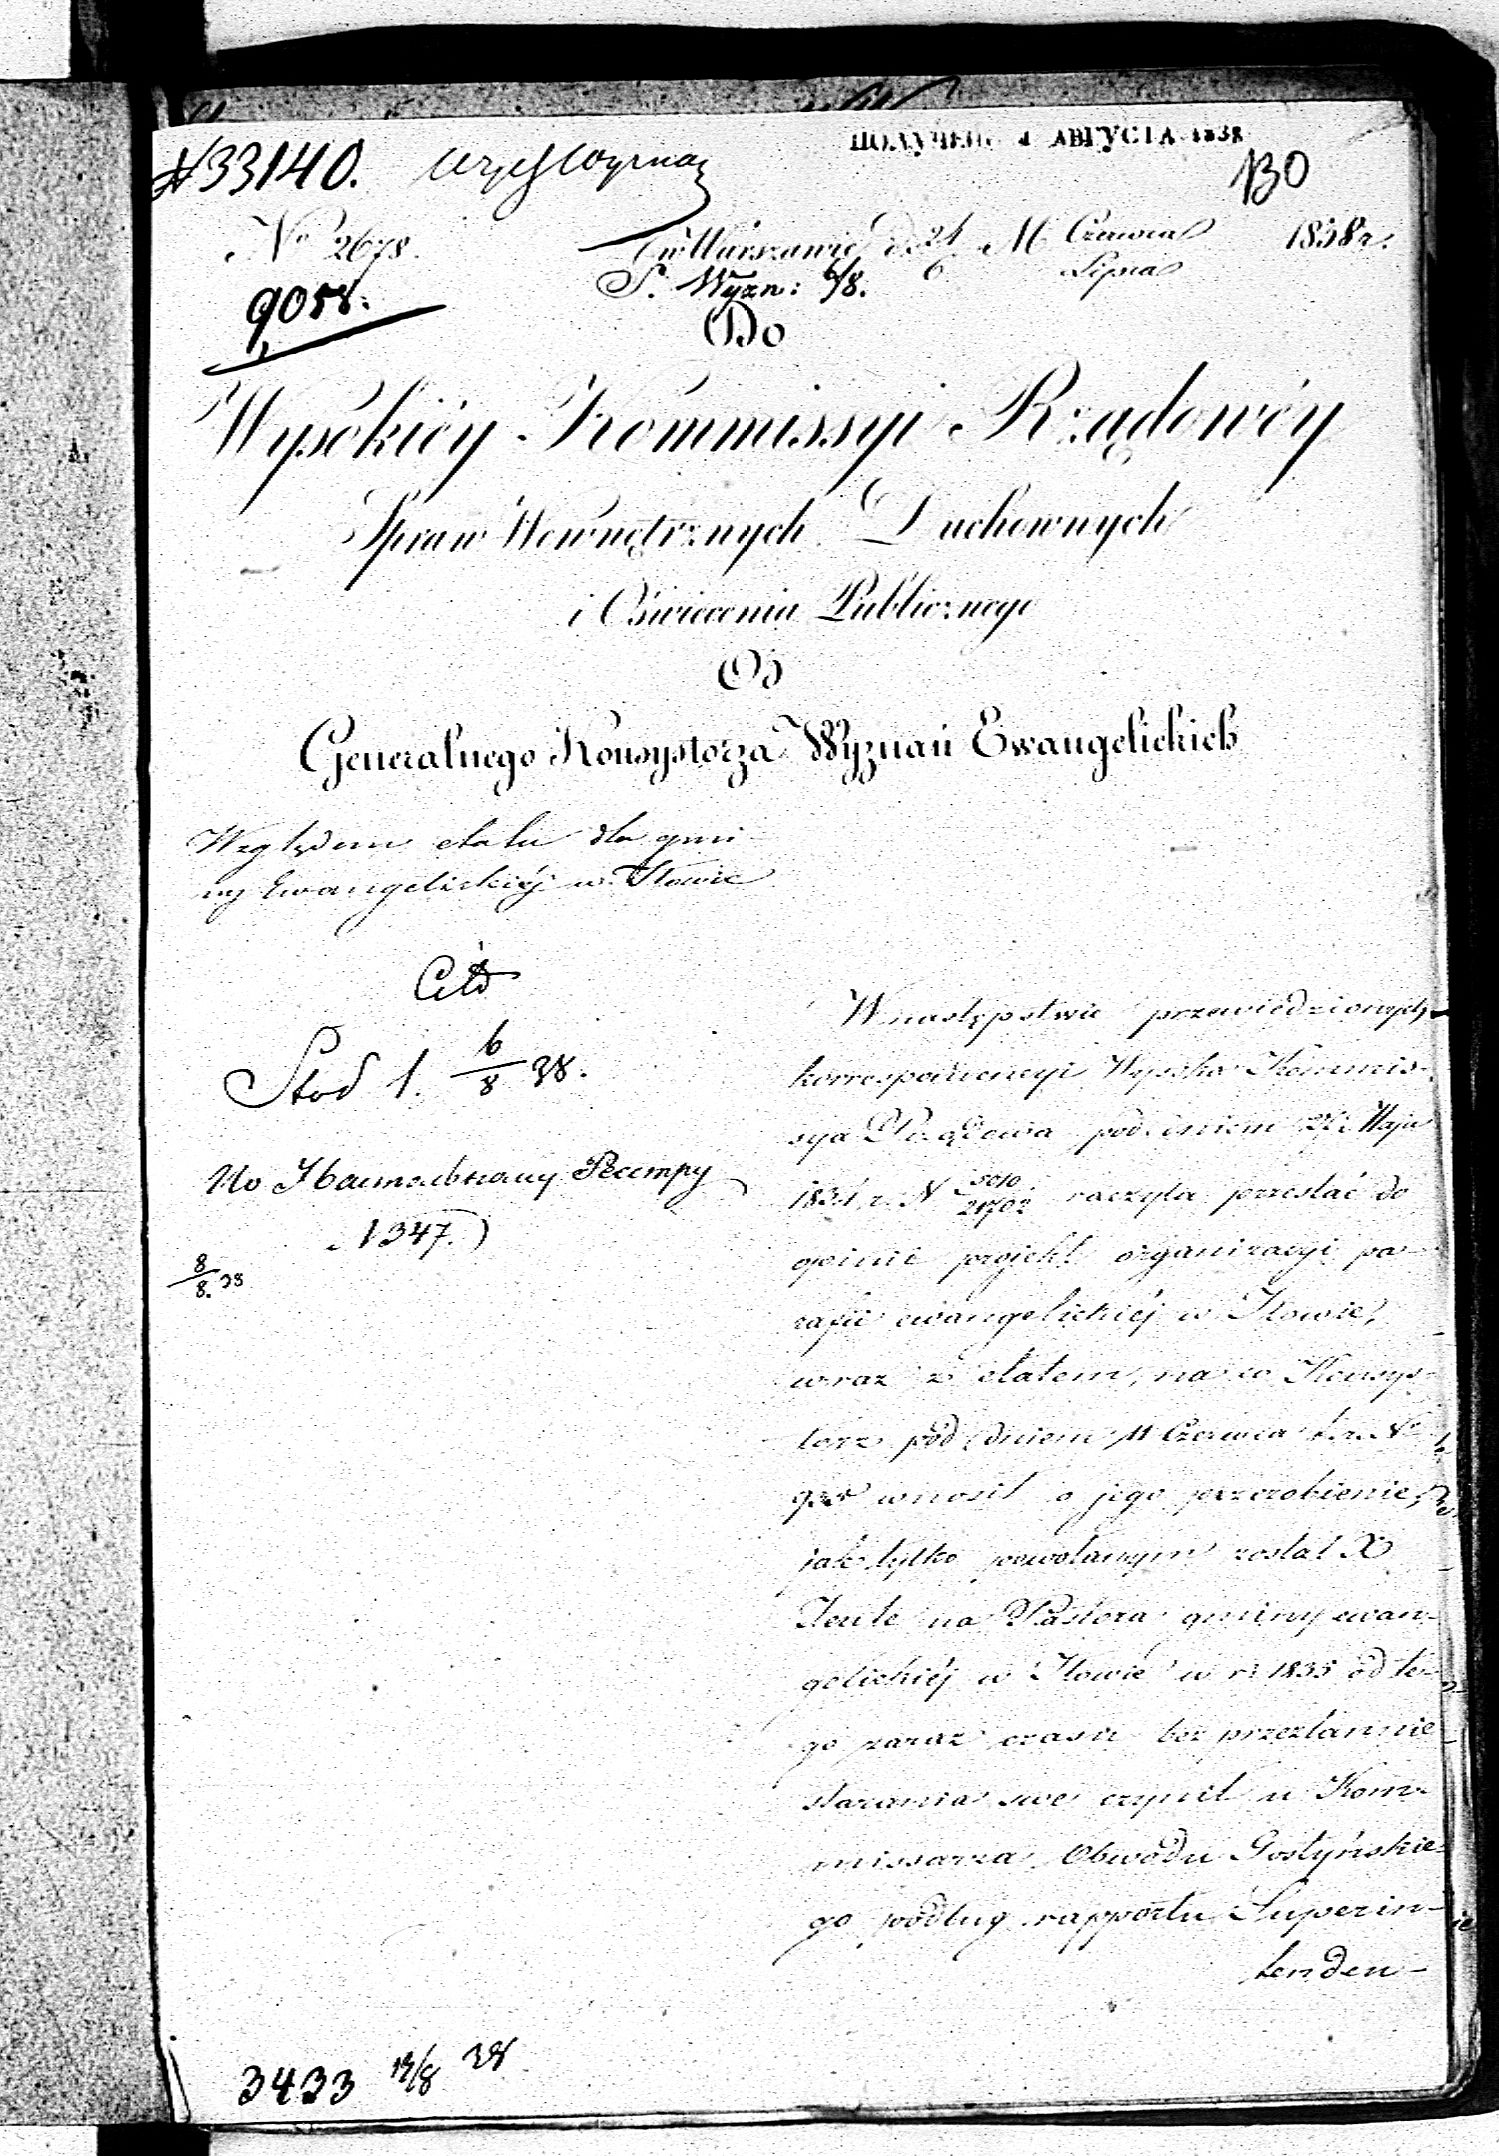 ПОЛУЧЕНО 1 АВГУСТА 1838
N 33140.
130
No 2678.
w Warszawie d. 24 M Czerwca 1838 r.
6 Lipca
S. Wyzn: 6/8.
9058.
Do
Wysokiéy Kommissyi Rządowéy
Spraw Wewnętrznych Duchownych
i Oświecenia Publicznego
Od
Generalnego Konsystorza Wyznań Ewangelickich
Względem etatu dla gmi
ny Ewangelickiéj w Iłowie
6/8 38.
1347.)
8/8. 38
W następstwie przewiedzionych
korrespondencyi Wysoka Kommis-
sya Rządowa pod dniem Maja
183 r. N 21702 raczyła przesłać do
opinii projekt organizacyi pa-
rafii ewangelickiéj w Iłowie,
wraz z etatem, na co Konsys-
torz pod dniem 11 Czerwca t. r. No
wnosił o jego przerobienie,
jak tylko powołanym został X
na Pastora gminy ewan-
gelickiéj w Iłowie w r. 1835 od te-
go zaraz czasu bez przestannie
starania swe czynił u Kom-
missarza Obwodu Gostyńskie-
go podług rapportu Superin-
tenden-
3433 38